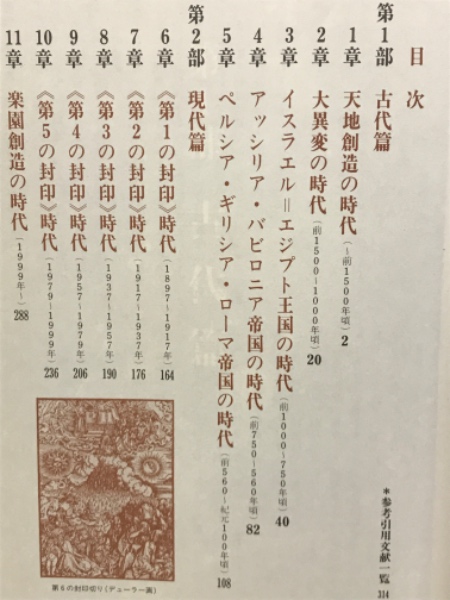 目次
第1部 古代篇
1章 天地創造の時代(〜前1500年頃) 2
2章 大異変の時代(前1500〜1000年頃) 20
3章 イスラエル=エジプト王国の時代(前1000〜750年頃) 40
4章 アッシリア・バビロニア帝国の時代(前750〜560年頃) 82
5章 ペルシア・ギリシア・ローマ帝国の時代(前560〜紀元100年頃) 108
第2部 現代篇
6章 《第1の封印》時代(1897〜1917年) 164
7章 《第2の封印》時代(1917〜1937年) 176
8章 《第3の封印》時代(1937〜1957年) 190
9章 《第4の封印》時代(1957〜1979年) 206
10章 《第5の封印》時代(1979〜1999年) 236
11章 楽園創造の時代(1999年〜) 288
*参考引用文献一覧 314
第6の封印切り(デューラー画)